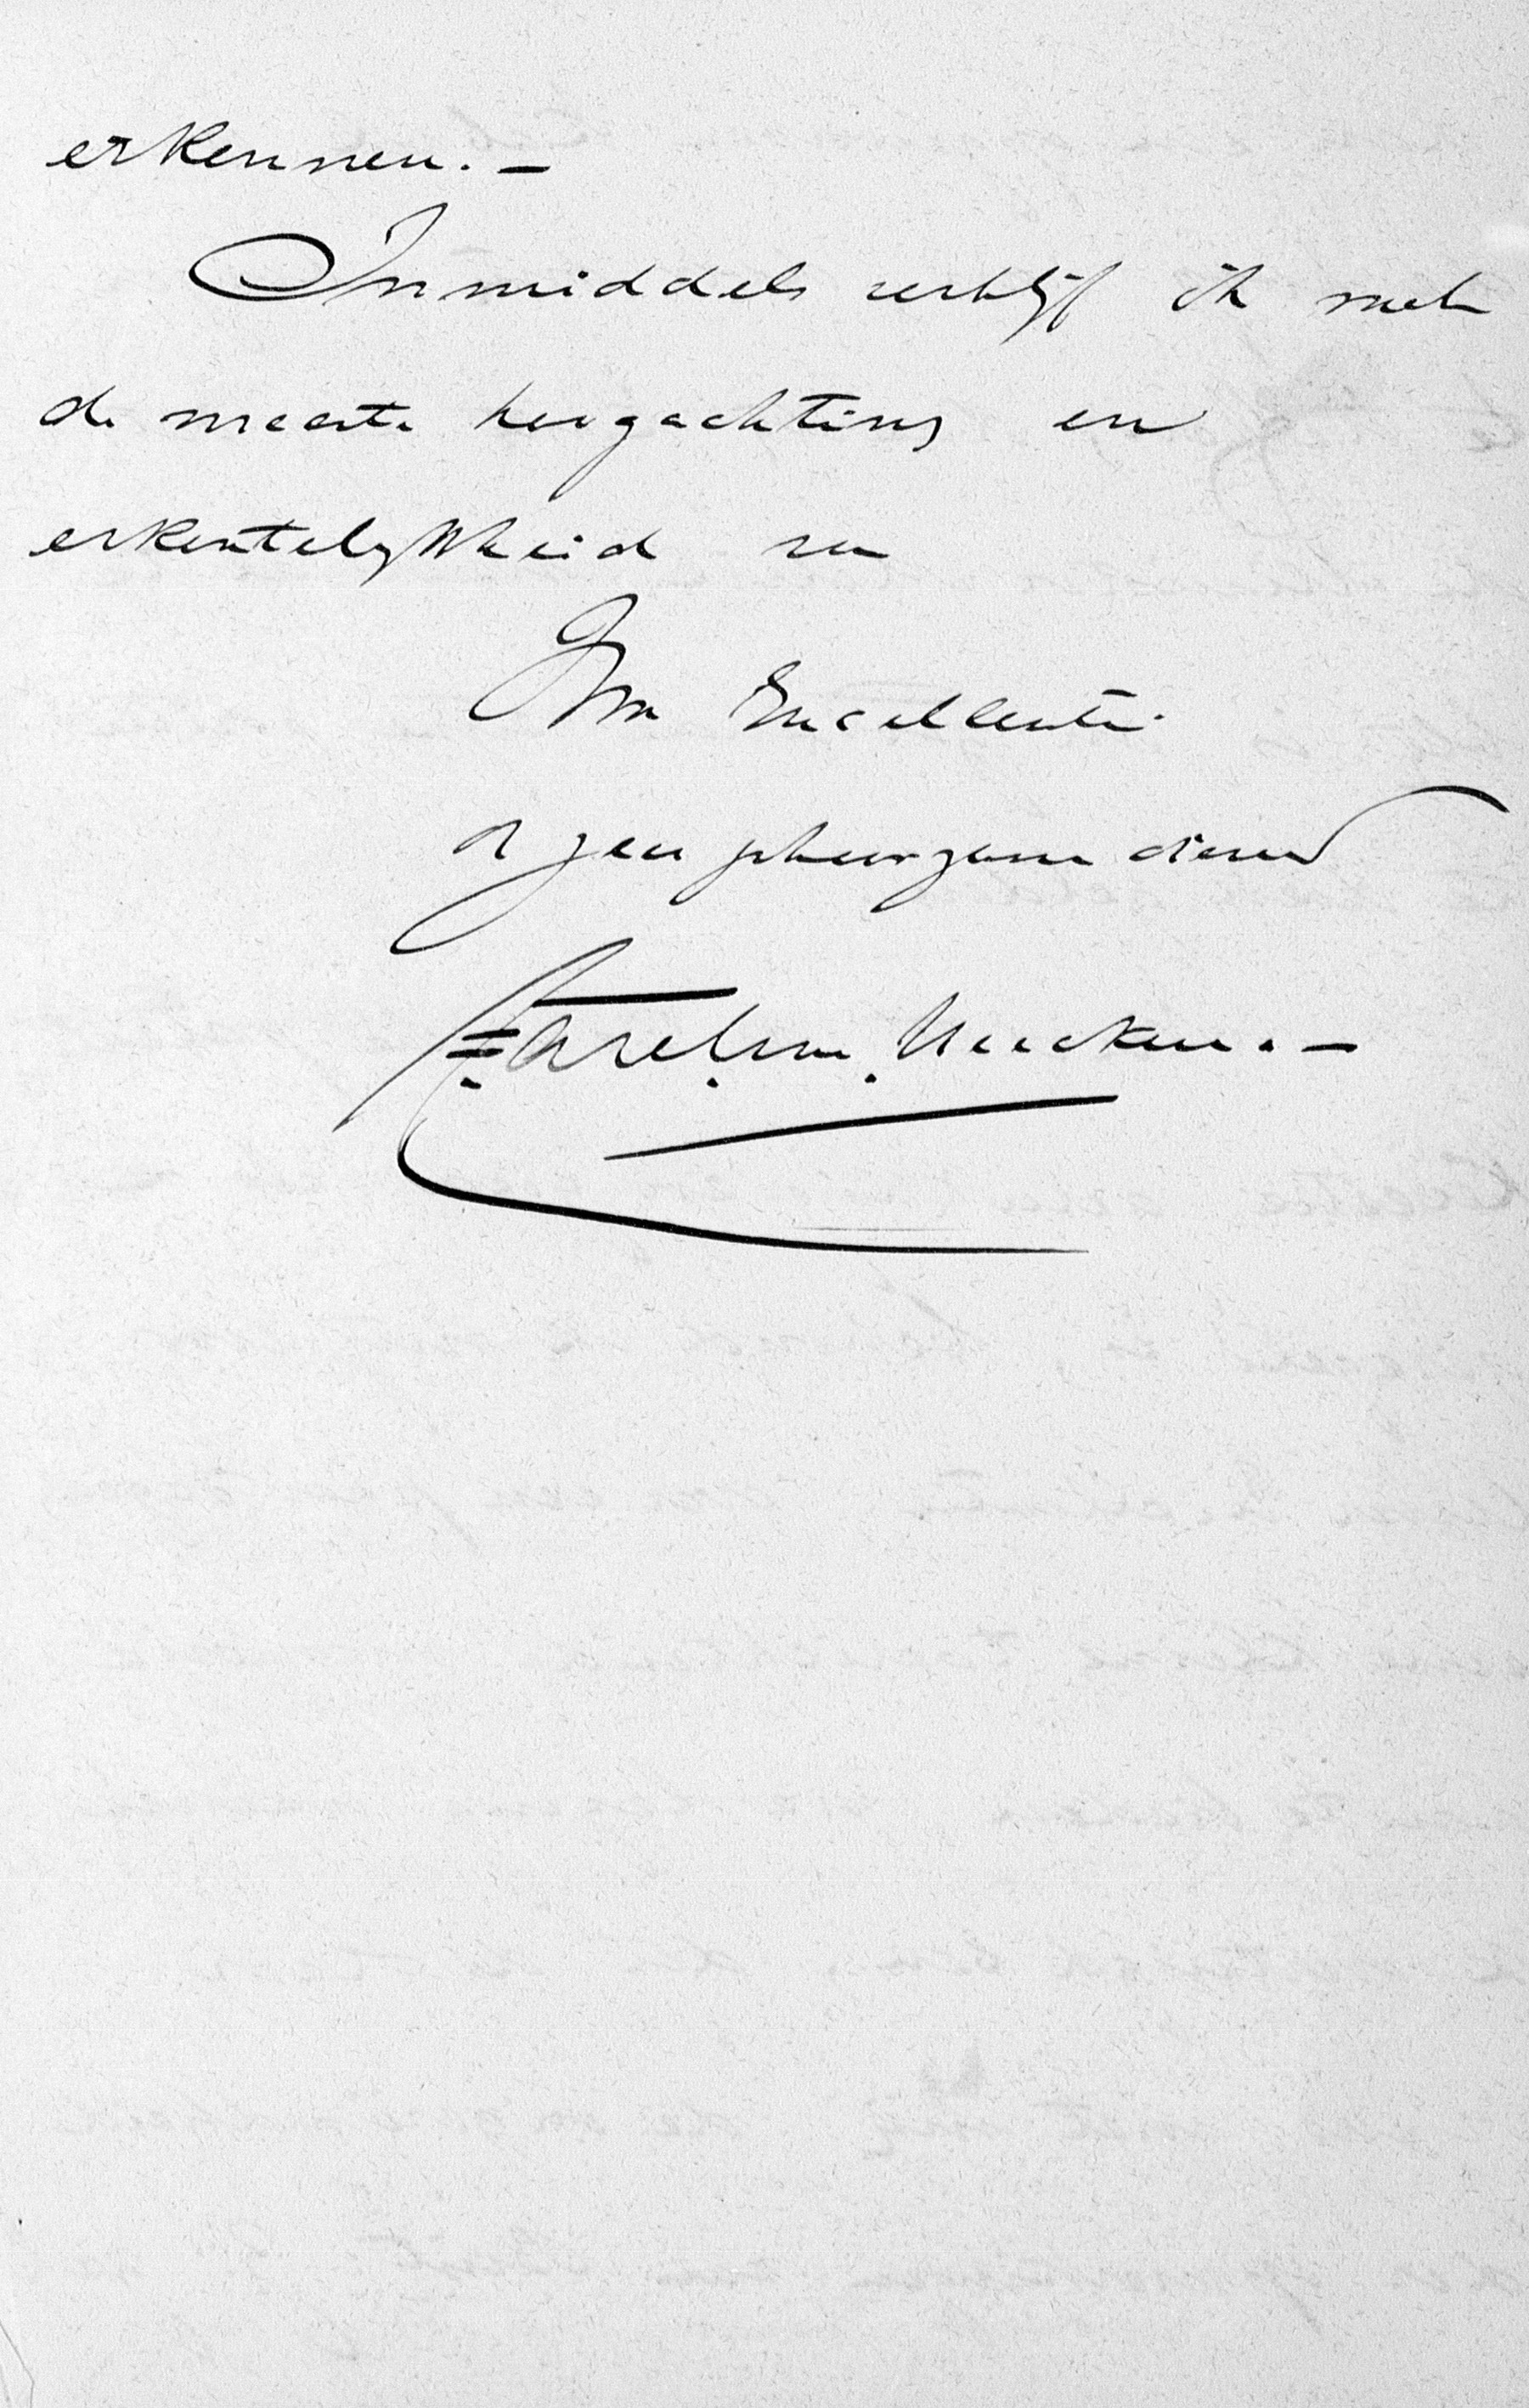 erkennen. —
Inmiddels verblijf ik met
de meeste hoogachting en
erkentelijkheid van
Uw Excellentie
dienaar